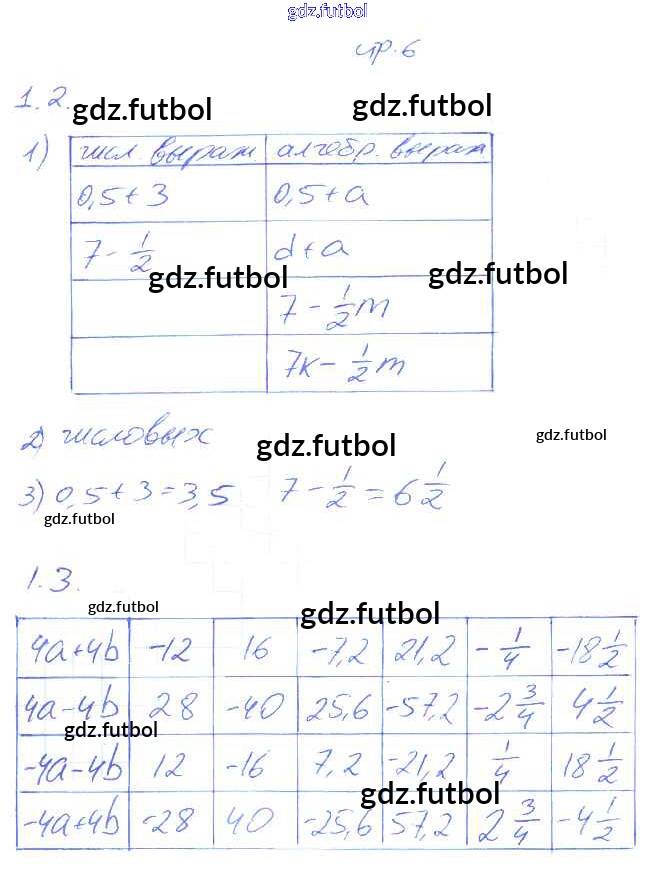 gdz.futbol
стр. 6
1.2.
gdz.futbol gdz.futbol
1) числ. выраж. алгебр. выраж
0,5 + 3 0,5 + a
7 - 1/2 d + a
gdz.futbol gdz.futbol
7 - 1/2 m
7к - 1/2 m
2) числовых
gdz.futbol gdz.futbol
3) 0,5 + 3 = 3,5 7 - 1/2 = 6 1/2
gdz.futbol
1.3.
gdz.futbol gdz.futbol
4a+4b -12 16 -7,2 21,2 -1/4 -18 1/2
4a-4b 28 -40 25,6 -57,2 -2 3/4 4 1/2
gdz.futbol
-4a-4b 12 -16 7,2 -21,2 1/4 18 1/2
gdz.futbol
-4a+4b -28 40 -25,6 57,2 2 3/4 -4 1/2